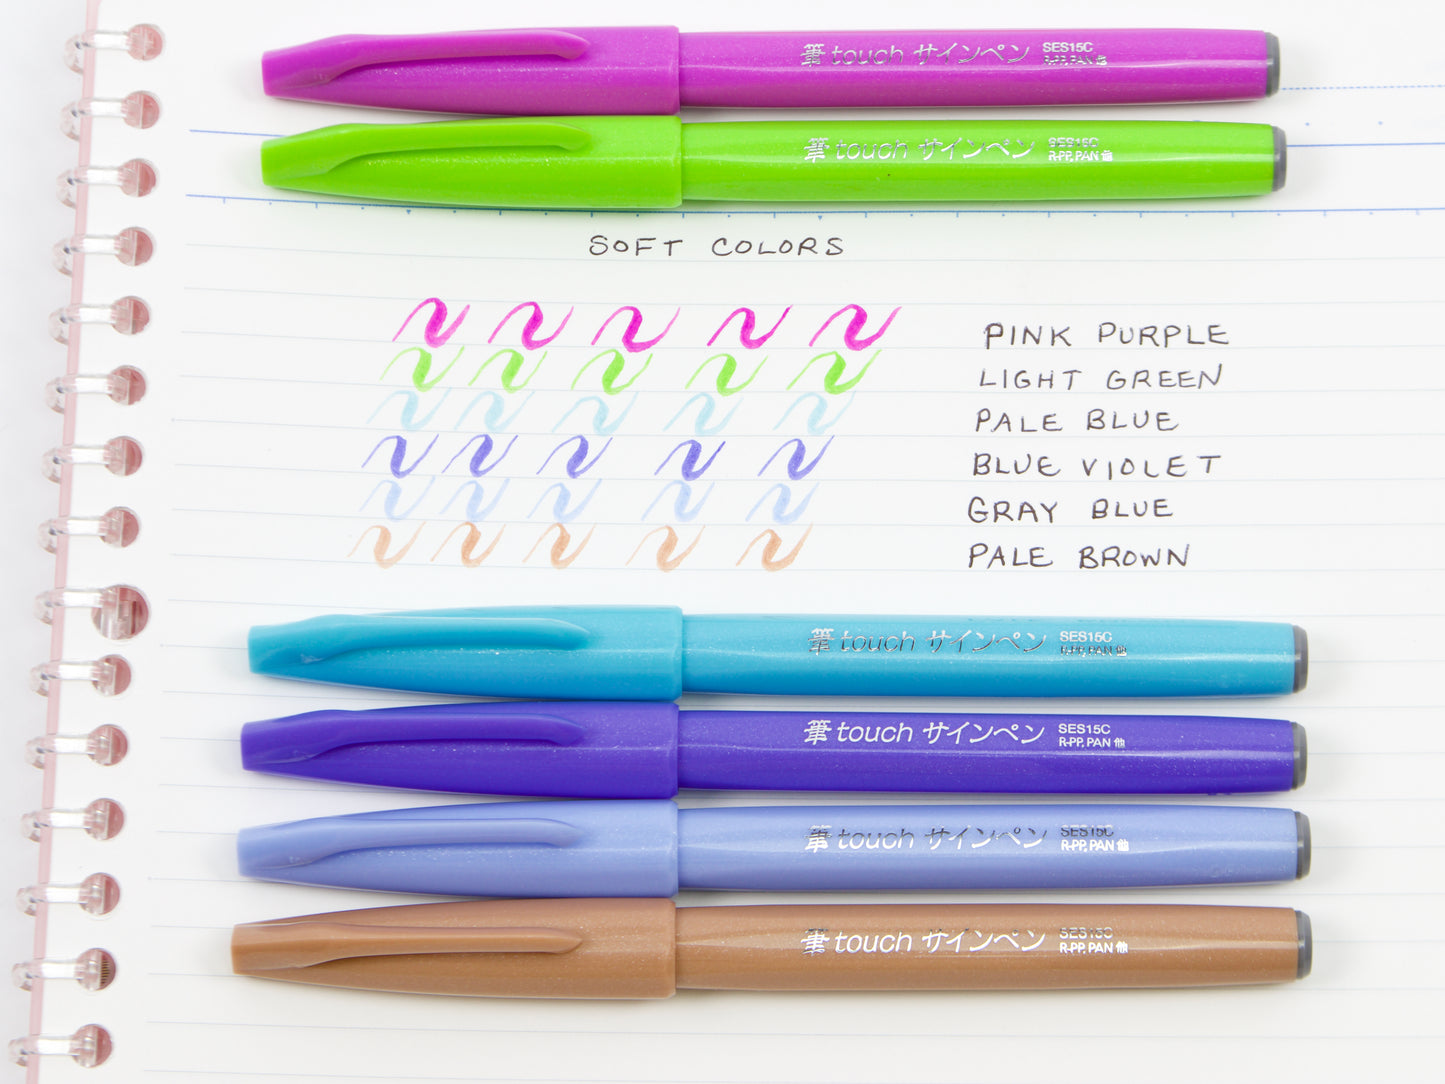 筆touch サインペン SES15C
R-PP, PAN 他
筆touch サインペン SES15C
R-PP, PAN 他
SOFT COLORS
PINK PURPLE
LIGHT GREEN
PALE BLUE
BLUE VIOLET
GRAY BLUE
PALE BROWN
筆touch サインペン SES15C
R-PP, PAN 他
筆touch サインペン SES15C
R-PP, PAN 他
筆touch サインペン SES15C
R-PP, PAN 他
筆touch サインペン SES15C
R-PP, PAN 他